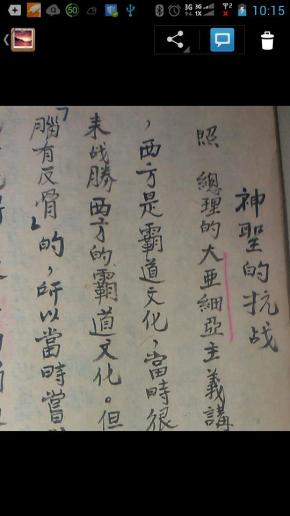 10:15
神聖的抗战
照 總理的大亜細亞主義講
，西方是霸道文化，當時很
来战勝西方的霸道文化。但
「腦有反骨」的，所以當時嘗